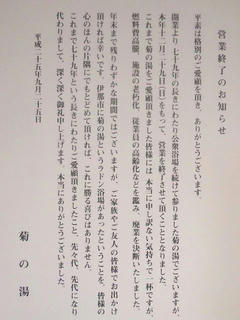 営業終了のお知らせ
平素は格別のご愛顧を頂き、ありがとうございます。
開業より七十九年の長きにわたり公衆浴場を続けて参りました菊の湯でございますが、
本年十二月二十九日(日)をもって、営業を終了させて頂くこととなりました。
これまで菊の湯をご愛顧頂きました皆様には、本当に申し訳ない気持ちで一杯ですが、
燃料費高騰、施設の老朽化、従業員の高齢化などを鑑み、廃業を決断いたしました。
年末まで残りわずかな期間ではございますが、ご家族やご友人の皆様でお出かけ
頂ければ幸いです。伊那市に菊の湯というラドン浴場があったということを、皆様の
心のほんの片隅にでもとどめて頂ければ、これに勝る喜びはありません。
これまで七十九年という長きにわたりご愛顧頂きましたこと、先々代、先代になり
代わりまして、深く深く御礼申し上げます。本当にありがとうございました。
平成二十五年九月二十五日
菊の湯